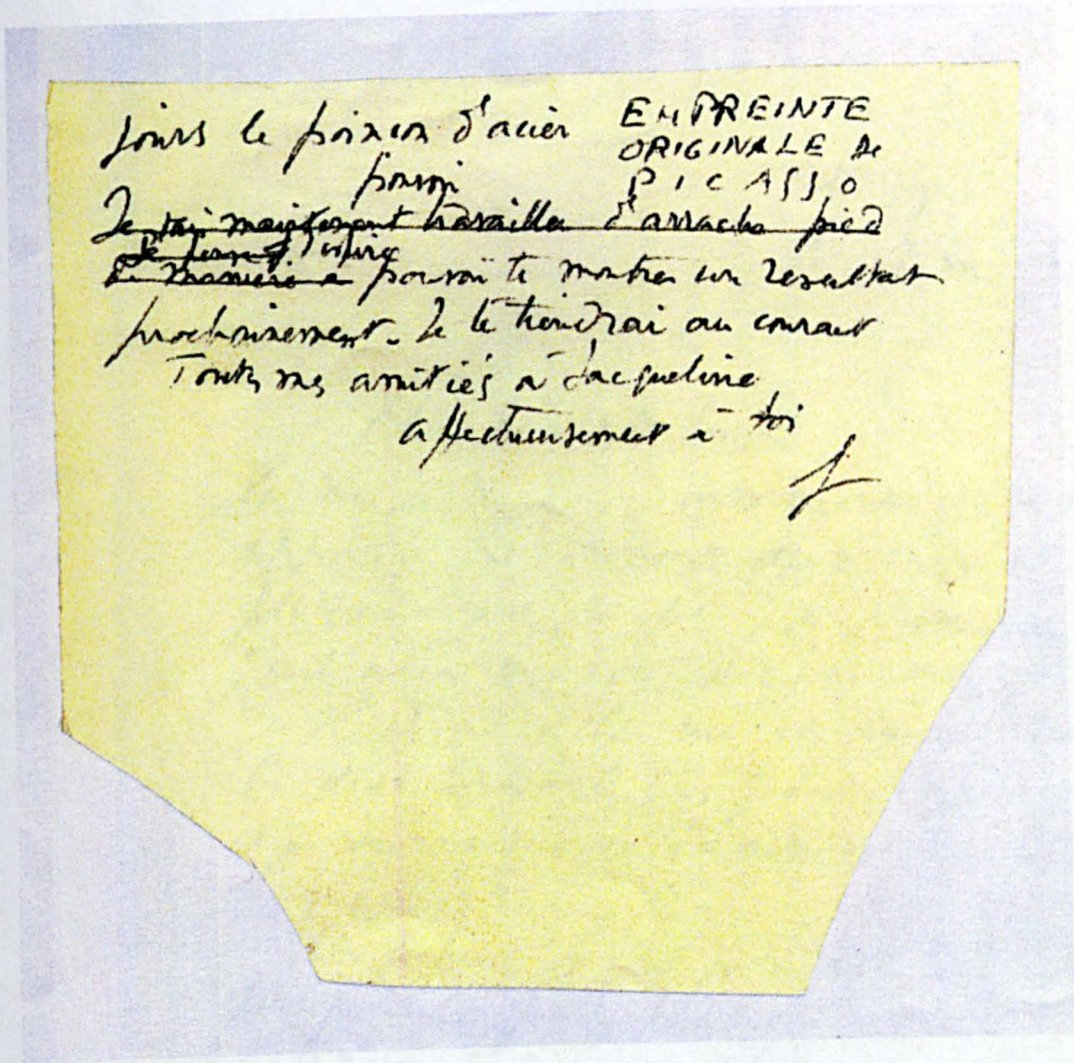 jours le poinçon d'acier EMPREINTE
ORIGINALE de
PICASSO
pouvoir
Je vai maintenant travailler d'arrache pied
de manière a pouvoir te montrer un resultat
prochainement. Je te tiendrai au courant
Toutes mes amitiés à Jacqueline
affectueusement à toi